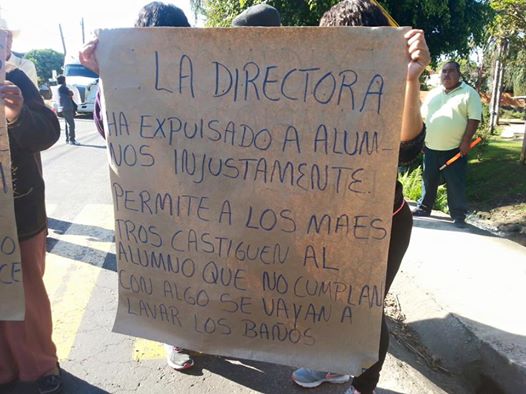 LA DIRECTORA
HA EXPUISADO A ALUM-
NOS INJUSTAMENTE.
PERMITE A LOS MAES
TROS CASTIGUEN AL
ALUMNO QUE NO CUMPLAN
CON ALGO SE VAYAN A
LAVAR LOS BAÑOS